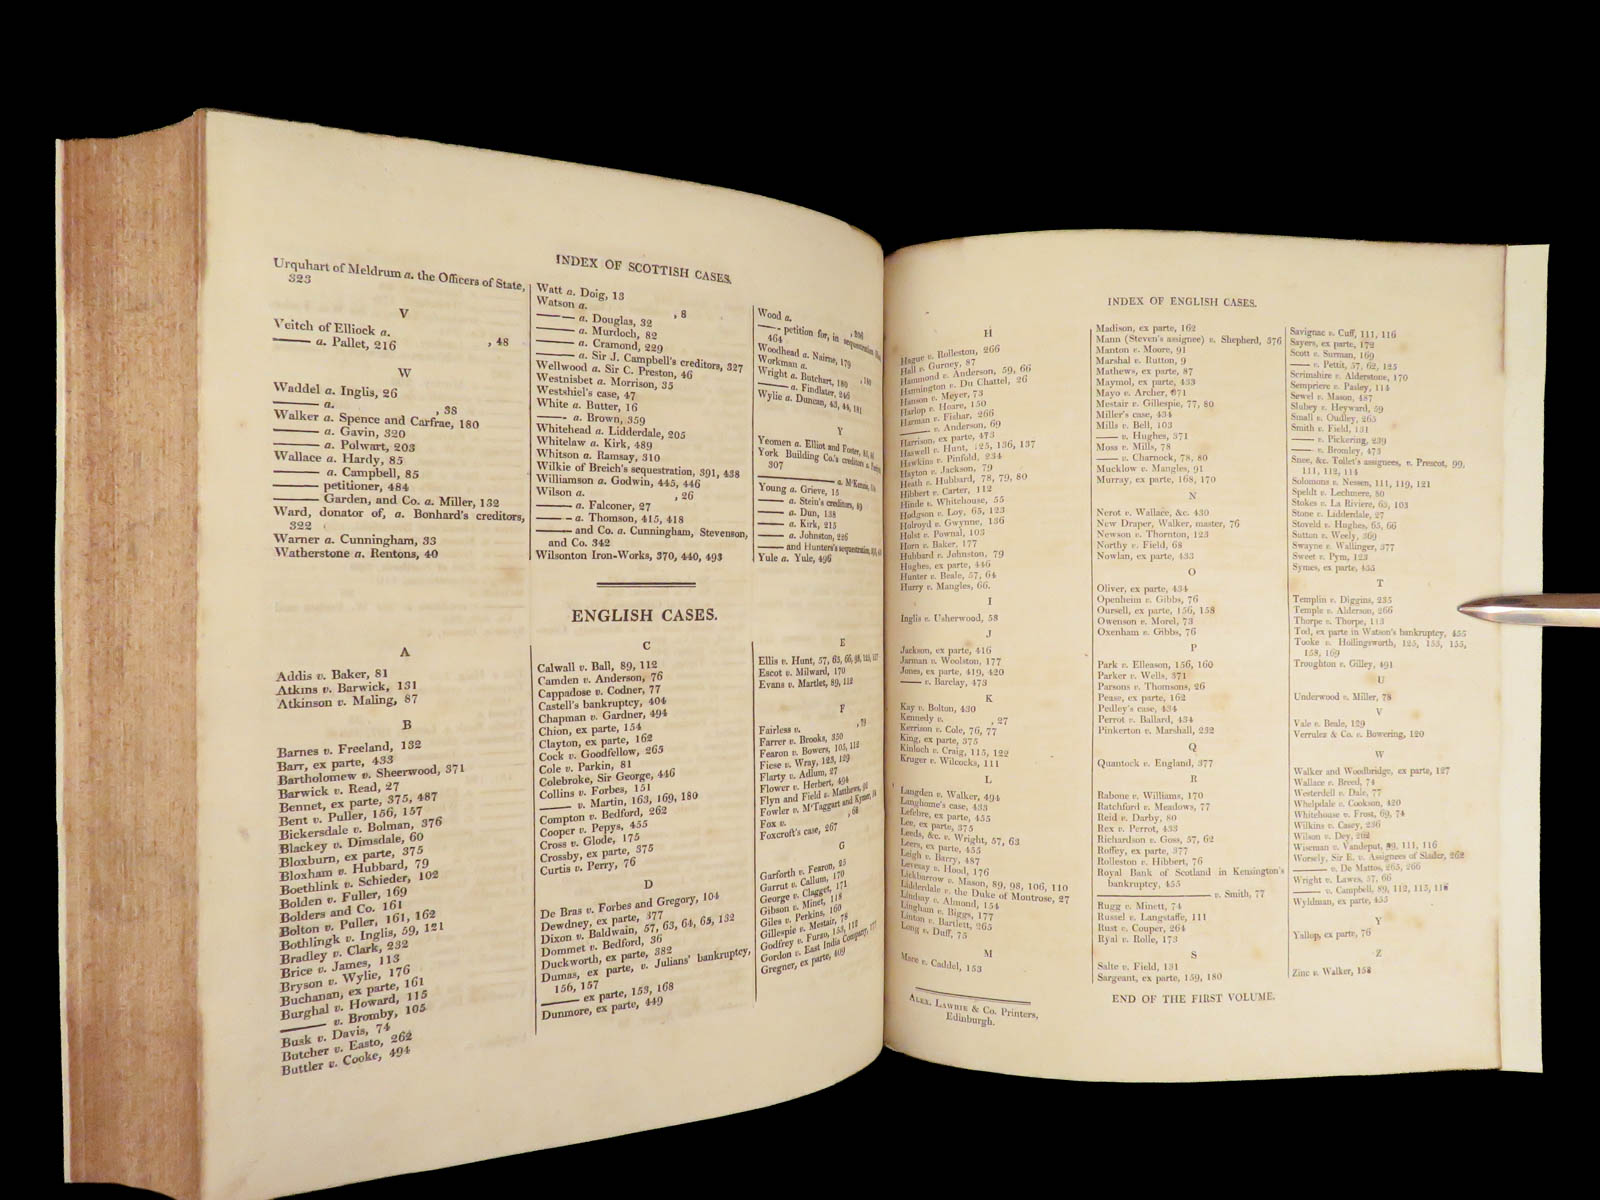 INDEX OF SCOTTISH CASES.
Urquhart of Meldrum a. the Officers of State,
323
V
Veitch of Elliock a. , 48
—— a. Pallet, 216
W
Waddel a. Inglis, 26
—— a. , 38
Walker a. Spence and Carfrae, 180
—— a. Gavin, 320
—— a. Polwart, 203
Wallace a. Hardy, 85
—— a. Campbell, 85
—— petitioner, 484
—— Garden, and Co. a. Miller, 132
Ward, donator of, a. Bonhard's creditors,
322
Warner a. Cunningham, 33
Watherstone a. Rentons, 40
Watt a. Doig, 13
Watson a. , 8
—— a. Douglas, 32
—— a. Murdoch, 82
—— a. Cramond, 229
—— a. Sir J. Campbell's creditors, 327
Wellwood a. Sir C. Preston, 46
Westnisbet a. Morrison, 35
Westshiel's case, 47
White a. Butter, 16
—— a. Brown, 359
Whitehead a. Lidderdale, 205
Whitelaw a. Kirk, 489
Whitson a. Ramsay, 310
Wilkie of Breich's sequestration, 391, 438
Williamson a. Godwin, 445, 446
Wilson a. , 26
—— a. Falconer, 27
—— a. Thomson, 415, 418
—— and Co. a. Cunningham, Stevenson,
and Co. 342
Wilsonton Iron-Works, 370, 440, 493
Wood a.
—— petition for, in sequestration
464
Woodhead a. Nairne, 179
Workman a. , 180
Wright a. Butchart, 180
—— a. Findlater, 246
Wylie a. Duncan, 43, 44, 181
Y
Yeomen a. Elliot and Foster,
York Building Co.'s creditors a.
307
—— a. M'Kenzie,
Young a. Grieve, 15
—— a. Stein's creditors,
—— a. Dun, 138
—— a. Kirk, 215
—— a. Johnston, 226
—— and Hunters's sequestration,
Yule a. Yule, 496
ENGLISH CASES.
A
Addis v. Baker, 81
Atkins v. Barwick, 131
Atkinson v. Maling, 87
B
Barnes v. Freeland, 132
Barr, ex parte, 433
Bartholomew v. Sheerwood, 371
Barwick v. Read, 27
Bennet, ex parte, 375, 487
Bent v. Puller, 156, 157
Bickersdale v. Bolman, 376
Blackey v. Dimsdale, 60
Bloxburn, ex parte, 375
Bloxham v. Hubbard, 79
Boethlink v. Schieder, 102
Bolden v. Fuller, 169
Bolders and Co. 161
Bolton v. Puller, 161, 162
Bothlingk v. Inglis, 59, 121
Bradley v. Clark, 232
Brice v. James, 113
Bryson v. Wylie, 176
Buchanan, ex parte, 161
Burghal v. Howard, 115
—— v. Bromby, 105
Busk v. Davis, 74
Butcher v. Easto, 262
Buttler v. Cooke, 494
C
Calwall v. Ball, 89, 112
Camden v. Anderson, 76
Cappadose v. Codner, 77
Castell's bankruptcy, 404
Chapman v. Gardner, 494
Chion, ex parte, 154
Clayton, ex parte, 162
Cock v. Goodfellow, 265
Cole v. Parkin, 81
Colebroke, Sir George, 446
Collins v. Forbes, 151
—— v. Martin, 163, 169, 180
Compton v. Bedford, 262
Cooper v. Pepys, 455
Cross v. Glode, 175
Crossby, ex parte, 375
Curtis v. Perry, 76
D
De Bras v. Forbes and Gregory, 104
Dewdney, ex parte, 377
Dixon v. Baldwain, 57, 63, 64, 65, 132
Dommet v. Bedford, 36
Duckworth, ex parte, 382
Dumas, ex parte, v. Julians' bankruptcy,
156, 157
—— ex parte, 153, 168
Dunmore, ex parte, 449
E
Ellis v. Hunt, 57, 63, 66,
Escot v. Milward, 170
Evans v. Martlet, 89, 112
F
Fairless v. , 79
Farrer v. Brooks, 350
Fearon v. Bowers, 105, 112
Fiese v. Wray, 123, 129
Flarty v. Adlum, 27
Flower v. Herbert, 494
Flyn and Field v. Matthews,
Fowler v. M'Taggart and Kymer,
Fox v. , 68
Foxcroft's case, 267
G
Garforth v. Fearon, 25
Garrut v. Callum, 170
George v. Clagget, 171
Gibson v. Minet, 118
Giles v. Perkins, 160
Gillespie v. Mestair, 78
Godfrey v. Furzo, 153, 112
Gordon v. East India Company, 177
Gregner, ex parte, 409
INDEX OF ENGLISH CASES.
H
Hague v. Rolleston, 266
Hall v. Gurney, 87
Hammond v. Anderson, 59, 66
Hannington v. Du Chattel, 26
Hanson v. Meyer, 73
Harlop v. Hoare, 150
Harman v. Fishar, 266
—— v. Anderson, 69
Harrison, ex parte, 473
Haswell v. Hunt, 125, 136, 137
Hawkins v. Pinfold, 234
Hayton v. Jackson, 79
Heath v. Hubbard, 78, 79, 80
Hibbert v. Carter, 112
Hinde v. Whitehouse, 55
Hodgson v. Loy, 65, 123
Holroyd v. Gwynne, 136
Holst v. Pownal, 103
Horn v. Baker, 177
Hubbard v. Johnston, 79
Hughes, ex parte, 446
Hunter v. Beale, 57, 64
Hurry v. Mangles, 66.
I
Inglis v. Usherwood, 58
J
Jackson, ex parte, 416
Jarman v. Woolston, 177
Jones, ex parte, 419, 420
—— v. Barclay, 473
K
Kay v. Bolton, 430
Kennedy v. , 27
Kerrison v. Cole, 76, 77
King, ex parte, 375
Kinloch v. Craig, 115, 122
Kruger v. Wilcocks, 111
L
Langden v. Walker, 494
Langhome's case, 433
Lefebre, ex parte, 455
Lee, ex parte, 375
Leeds, &c. v. Wright, 57, 63
Leers, ex parte, 455
Leigh v. Barry, 487
Levesay v. Hood, 176
Lickbarrow v. Mason, 89, 98, 106, 110
Lidderdale v. the Duke of Montrose, 27
Lindsay v. Almond, 154
Lingham v. Biggs, 177
Linton v. Bartlett, 265
Long v. Duff, 75
M
Mace v. Caddel, 153
Alex. Lawrie & Co. Printers,
Edinburgh.
Madison, ex parte, 162
Mann (Steven's assignee) v. Shepherd, 376
Manton v. Moore, 91
Marshal v. Rutton, 9
Mathews, ex parte, 87
Maymol, ex parte, 433
Mayo v. Archer, 371
Mestair v. Gillespie, 77, 80
Miller's case, 434
Mills v. Bell, 103
—— v. Hughes, 371
Moss v. Mills, 78
—— v. Charnock, 78, 80
Mucklow v. Mangles, 91
Murray, ex parte, 168, 170
N
Nerot v. Wallace, &c. 430
New Draper, Walker, master, 76
Newson v. Thornton, 123
Northy v. Field, 68
Nowlan, ex parte, 433
O
Oliver, ex parte, 434
Openheim v. Gibbs, 76
Oursell, ex parte, 156, 158
Owenson v. Morel, 73
Oxenham v. Gibbs, 76
P
Park v. Elleason, 156, 160
Parker v. Wells, 371
Parsons v. Thomsons, 26
Pease, ex parte, 162
Pedley's case, 434
Perrot v. Ballard, 434
Pinkerton v. Marshall, 232
Q
Quantock v. England, 377
R
Rabone v. Williams, 170
Ratchford v. Meadows, 77
Reid v. Darby, 80
Rex v. Perrot, 433
Richardson v. Goss, 57, 62
Roffey, ex parte, 377
Rolleston v. Hibbert, 76
Royal Bank of Scotland in Kensington's
bankruptcy, 455
—— v. Smith, 77
Rugg v. Minett, 74
Russel v. Langstaffe, 111
Rust v. Couper, 264
Ryal v. Rolle, 173
S
Salte v. Field, 131
Sargeant, ex parte, 159, 180
Savignac v. Cuff, 111, 116
Sayers, ex parte, 172
Scott v. Surman, 169
—— v. Pettit, 57, 62, 125
Scrimshire v. Alderstone, 170
Sempriere v. Pasley, 114
Sewel v. Mason, 487
Slubey v. Heyward, 59
Small v. Oudley, 265
Smith v. Field, 131
—— v. Pickering, 239
—— v. Bromley, 473
Snee, &c. Tollet's assignees, v. Prescot, 99,
111, 112, 114
Solomons v. Nessen, 111, 119, 121
Speldt v. Lechmere, 80
Stokes v. La Riviere, 65, 103
Stone v. Lidderdale, 27
Stoveld v. Hughes, 65, 66
Sutton v. Weely, 369
Swayne v. Wallinger, 377
Sweet v. Pym, 123
Symes, ex parte, 455
T
Templin v. Diggins, 235
Temple v. Alderson, 266
Thorpe v. Thorpe, 113
Tod, ex parte in Watson's bankruptcy, 455
Tooke v. Hollingsworth, 125, 153, 155,
158, 169
Troughton v. Gilley, 491
U
Underwood v. Miller, 78
V
Vale v. Beale, 129
Verrulez & Co. v. Bowering, 120
W
Walker and Woodbridge, ex parte, 127
Wallace v. Breed, 74
Westerdell v. Dale, 77
Whelpdale v. Cookson, 420
Whitehouse v. Frost, 69, 74
Wilkins v. Casey, 236
Wilson v. Dey, 262
Wiseman v. Vandeput, 99, 111, 116
Worsely, Sir E. v. Assignees of Slader, 262
—— v. De Mattos, 265, 266
Wright v. Lawes, 57, 66
—— v. Campbell, 89, 112, 115, 118
Wyldman, ex parte, 455
Y
Yallop, ex parte, 76
Z
Zinc v. Walker, 158
END OF THE FIRST VOLUME.